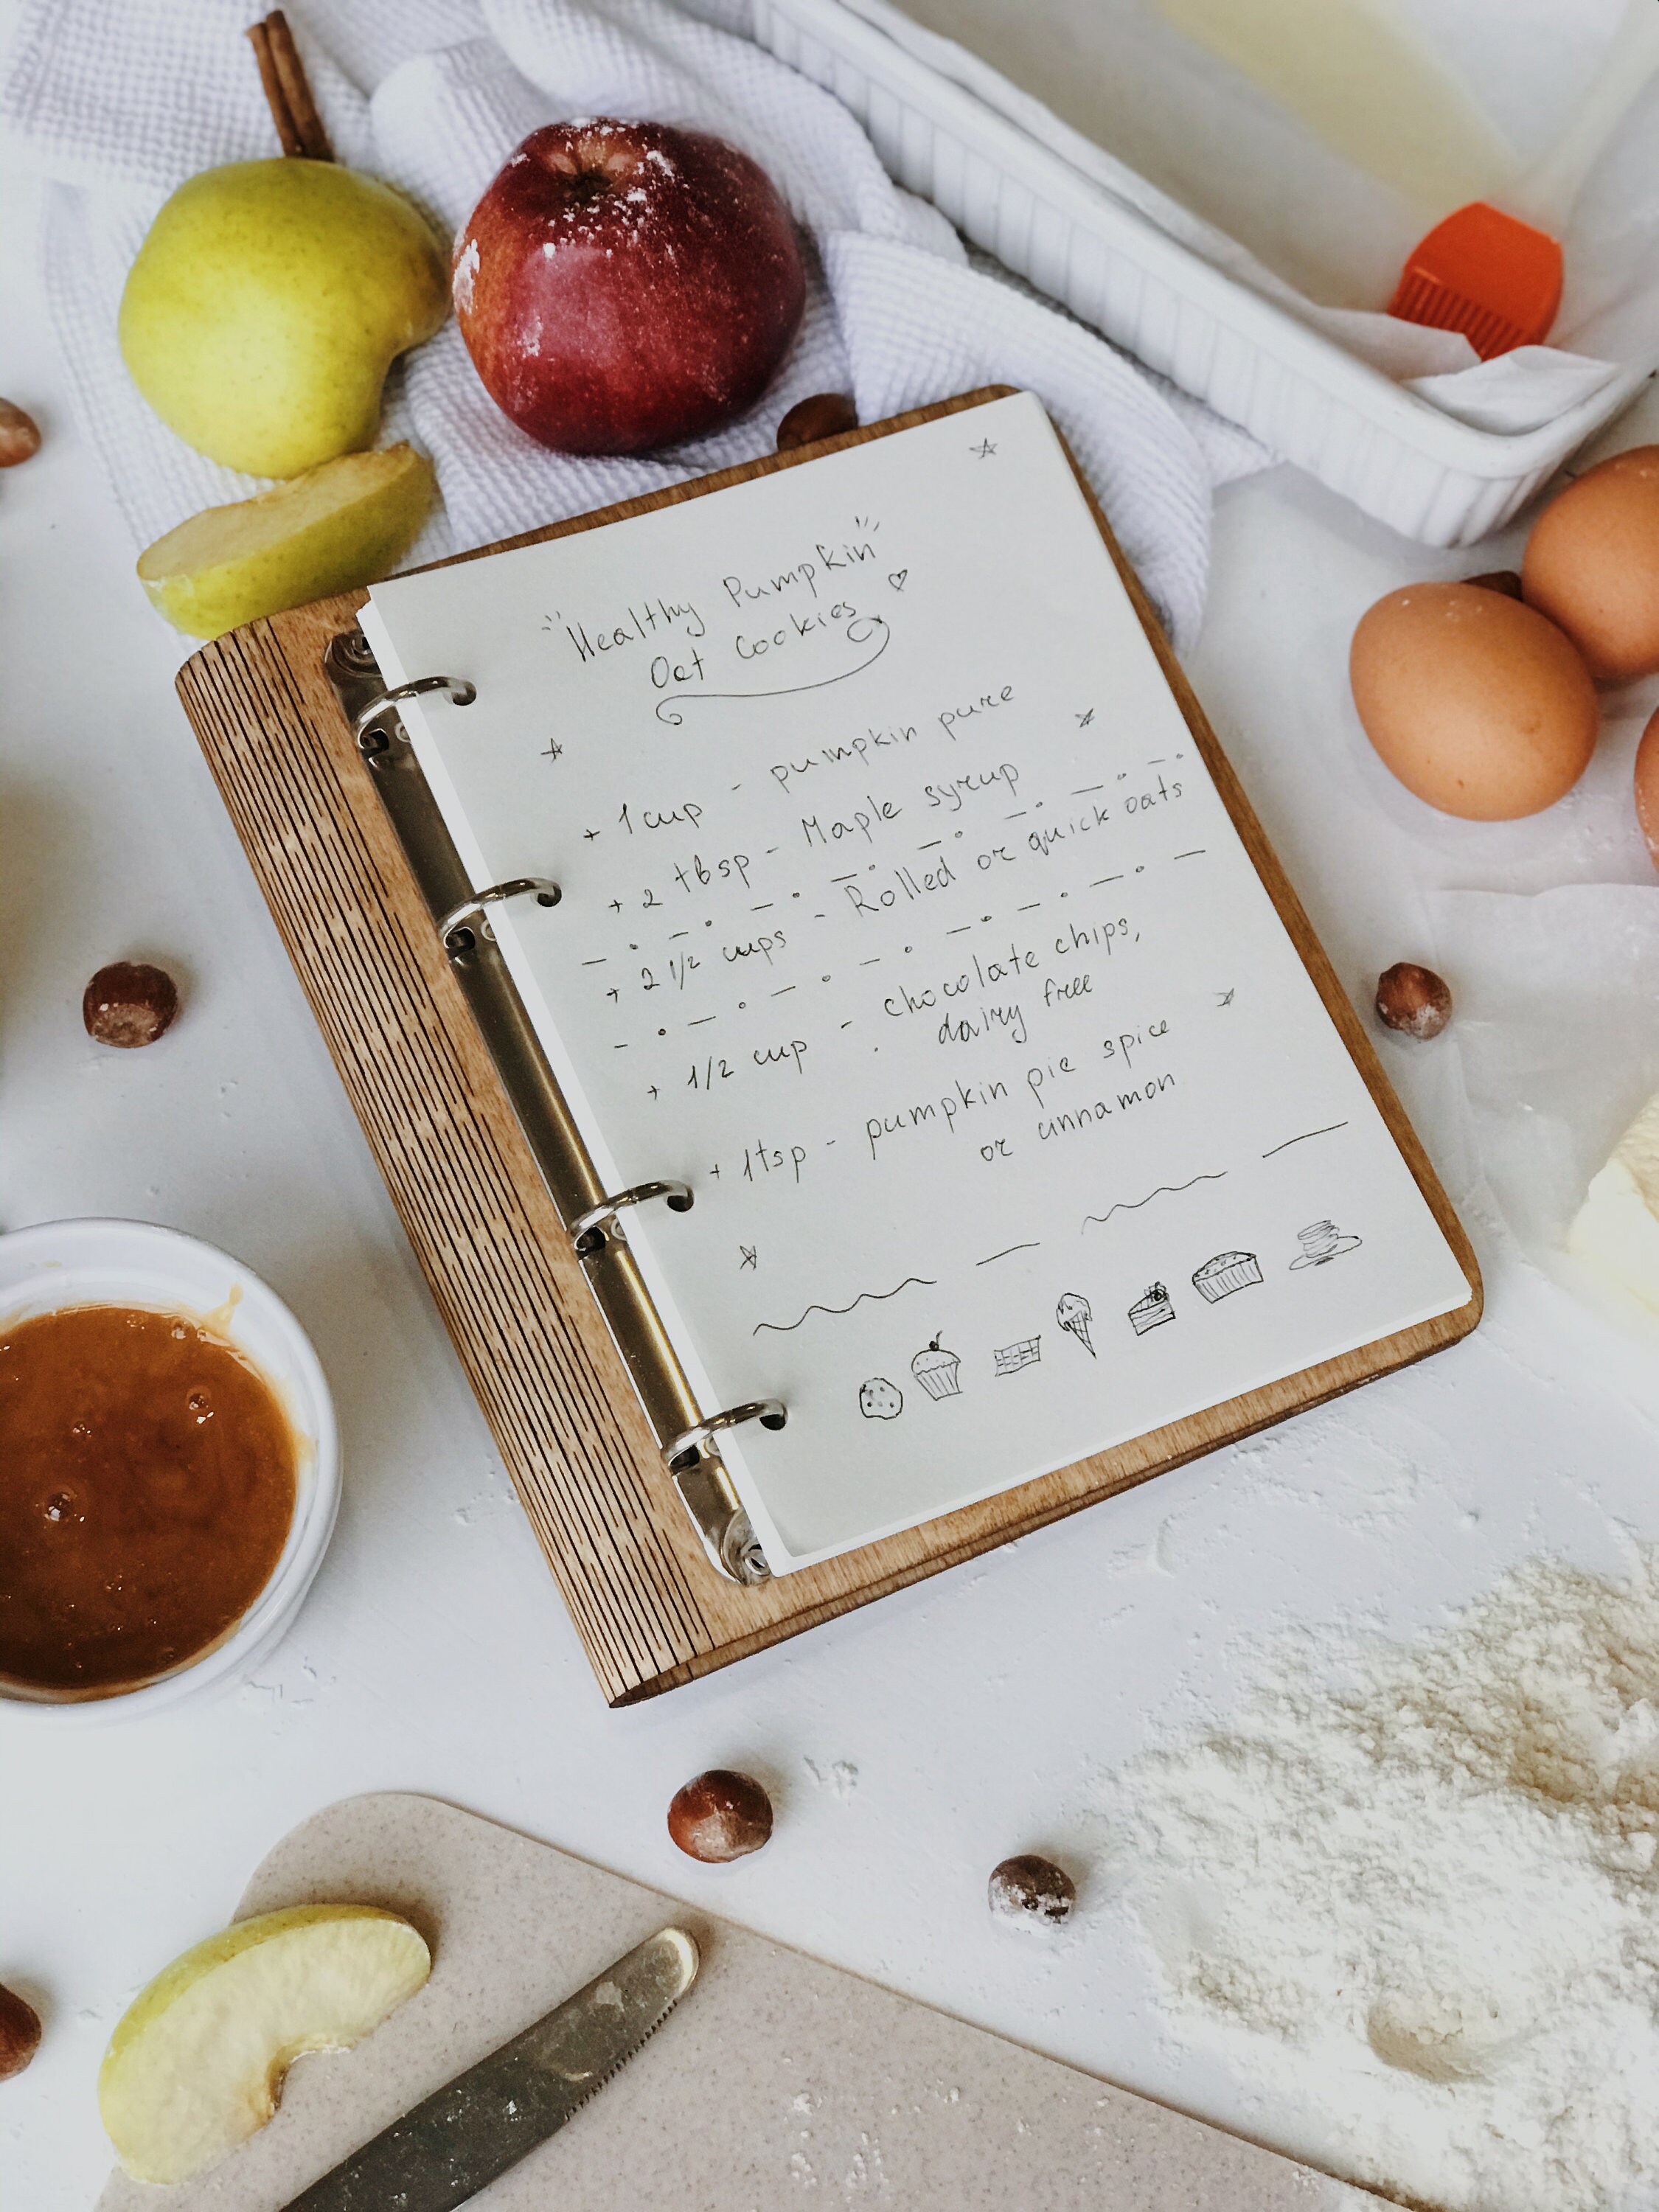 "Healthy Pumpkin"
Oat Cookies
+ 1 cup - pumpkin pure
+ 2 tbsp - Maple syrup
+ 2 1/2 cups - Rolled or quick oats
+ 1/2 cup - chocolate chips,
dairy free
+ 1tsp - pumpkin pie spice
or cinnamon